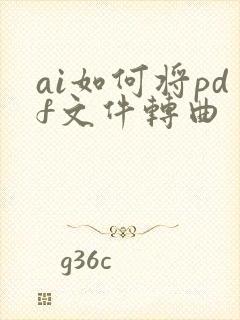 ai如何将pd
f文件轉曲
g36c